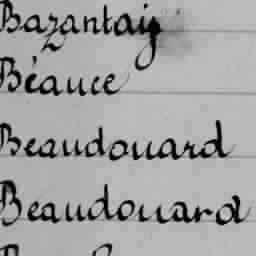 Bazantay
Béauce
Beaudouard
Beaudouard